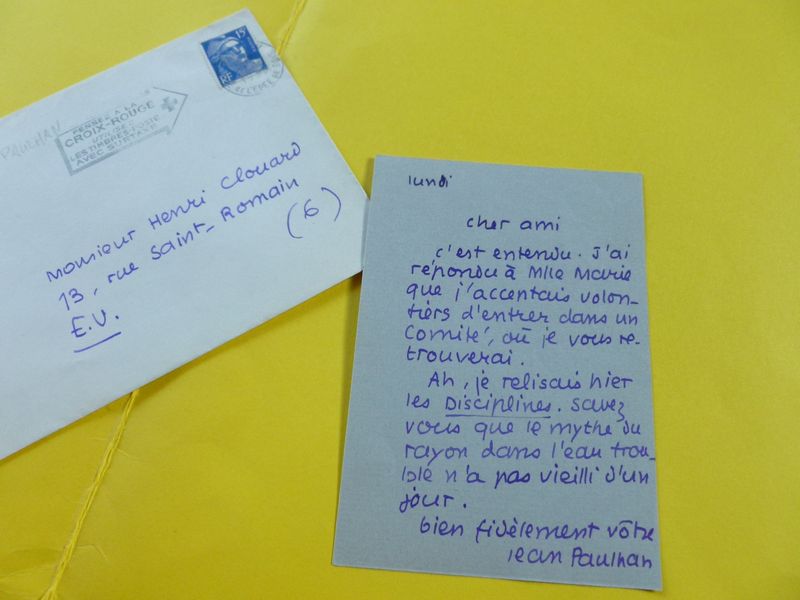 PAULHAN
PENSEZ A LA
CROIX-ROUGE
UTILISEZ
LES TIMBRES-POSTE
AVEC SURTAXE
15F
RF
Monsieur Henri Clouard
13, rue Saint-Romain
(6)
E.V.
lundi
cher ami
c'est entendu. J'ai
répondu à Mlle Marie
que j'acceptais volon-
tiers d'entrer dans un
Comité, où je vous re-
trouverai.
Ah, je relisais hier
les Disciplines. savez
vous que le mythe du
rayon dans l'eau trou-
blé n'a pas vieilli d'un
jour.
bien fidèlement vôtre
Jean Paulhan